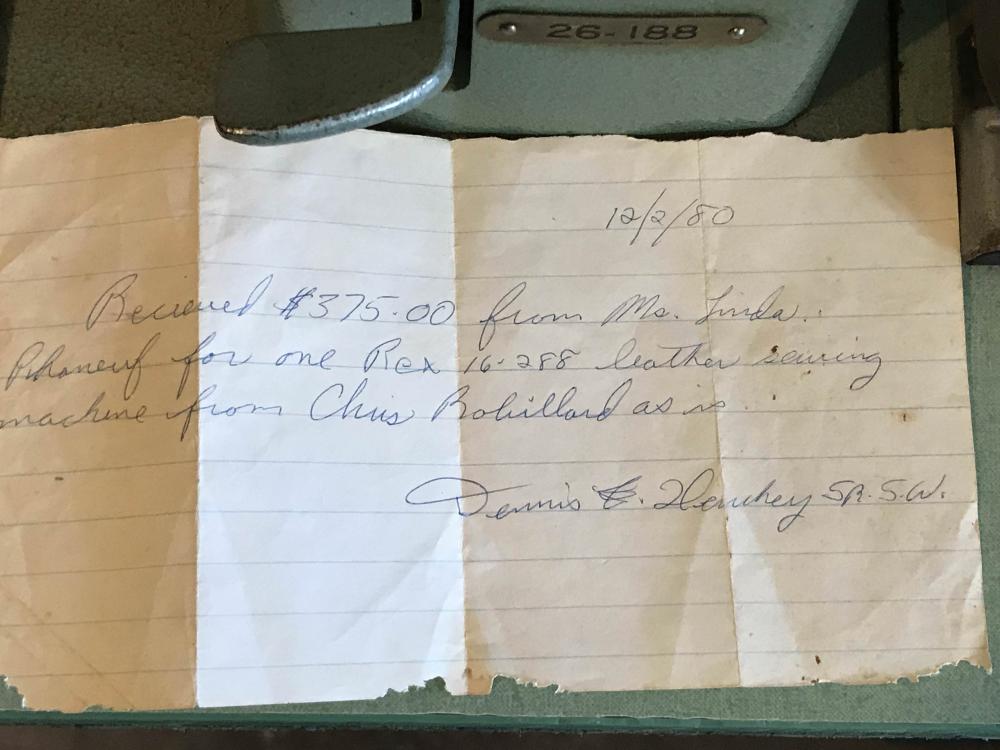 26-188
12/2/80
Recieved $375.00 from Ms. Linda
for one Rex 16-288 leather sewing
machine from Chris Robillard as is.
Dennis E. SR. S.W.